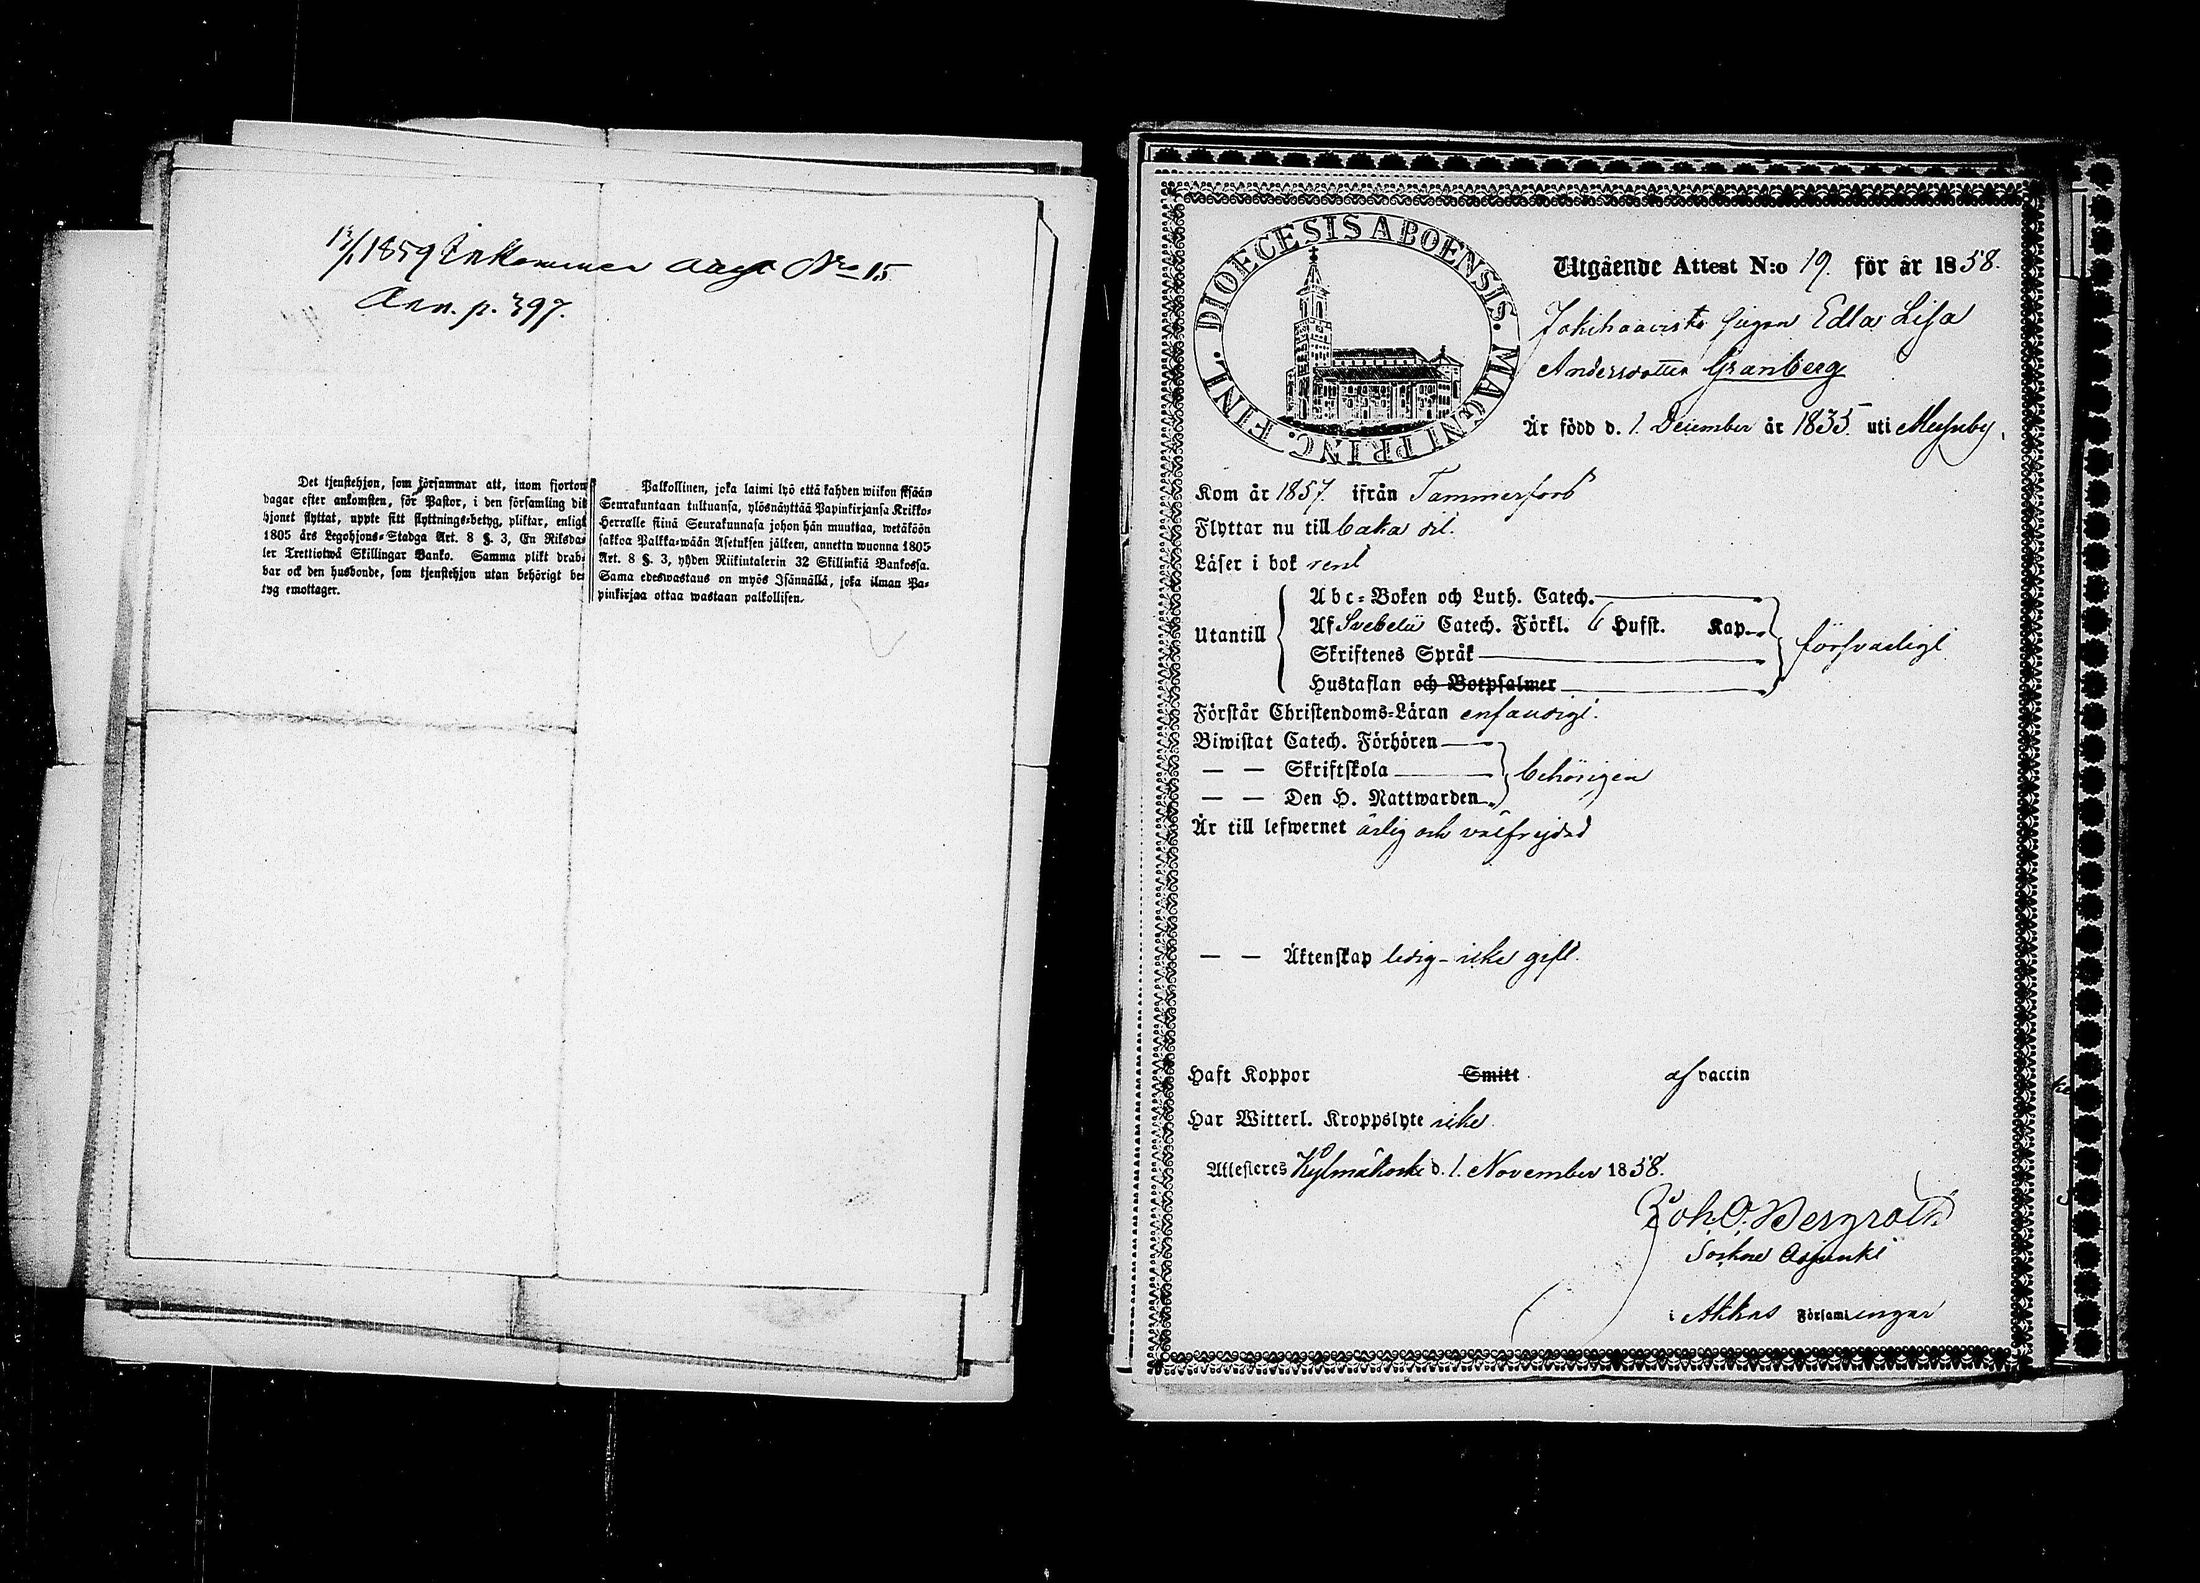 13/1 1859 Inkommen attest No 15
Ann. p. 397.
Det tjenstehjon, som försummar att, inom fjorton
dagar efter ankomsten, för Pastor, i den församling dit
hjonet flyttat, uppte sitt flyttnings-betyg, pliktar, enligt
1805 års Legohjons-Stadga Art. 8 §. 3, En Riksda-
ler Trettiotwå Skillingar Banko. Samma plikt drab-
bar ock den husbonde, som tjenstehjon utan behörigt be-
tyg emottager.
Palkollinen, joka laimi lyö että kahden wiikon sisään
Seurakuntaan tultuansa, ylösnäyttää Papinkirjansa Kirkko-
Herralle siinä Seurakunnasa johon hän muuttaa, wetäköön
sakkoa Palkka-wään Asetuksen jälkeen, annettu wuonna 1805
Art. 8 §. 3, yhden Riikintalerin 32 Skillinkiä Bankossa.
Sama edeswastaus on myös Isännällä, joka ilman Pa-
pinkirjaa ottaa wastaan palkollisen.
DIOECESIS ABOENSIS. MAGNI PRINC. FINL.
Utgående Attest N:o 19. för år 1858.
Jokihaavisto pigan Edla Lisa
Andersdotter Granberg
Är född d. 1. December år 1835. uti Messuby.
Kom år 1857. ifrån Tammerfors
Flyttar nu till baka dit.
Läser i bok rent
Utantill
Abc-Boken och Luth. Catech.
Af Svebelii Catech. Förkl. 6 Hufst. Kap.
Skriftenes Språk
Hustaflan och Botpsalmer
försvarligt
Förstår Christendoms-Läran enfaldigt.
Biwistat Catech. Förhören
— — Skriftskola
— — Den H. Nattwarden
behörigen
Är till lefwernet ärlig och välfrejdad
— — Äktenskap ledig - icke gift.
Haft Koppor Smitt af vaccin
Har Witterl. Kroppslyte icke.
Attesteres Kylmäkoski d. 1. November 1858.
Joh. O. Bergroth
Sockne Adjunkt
i Akkas Församlingar